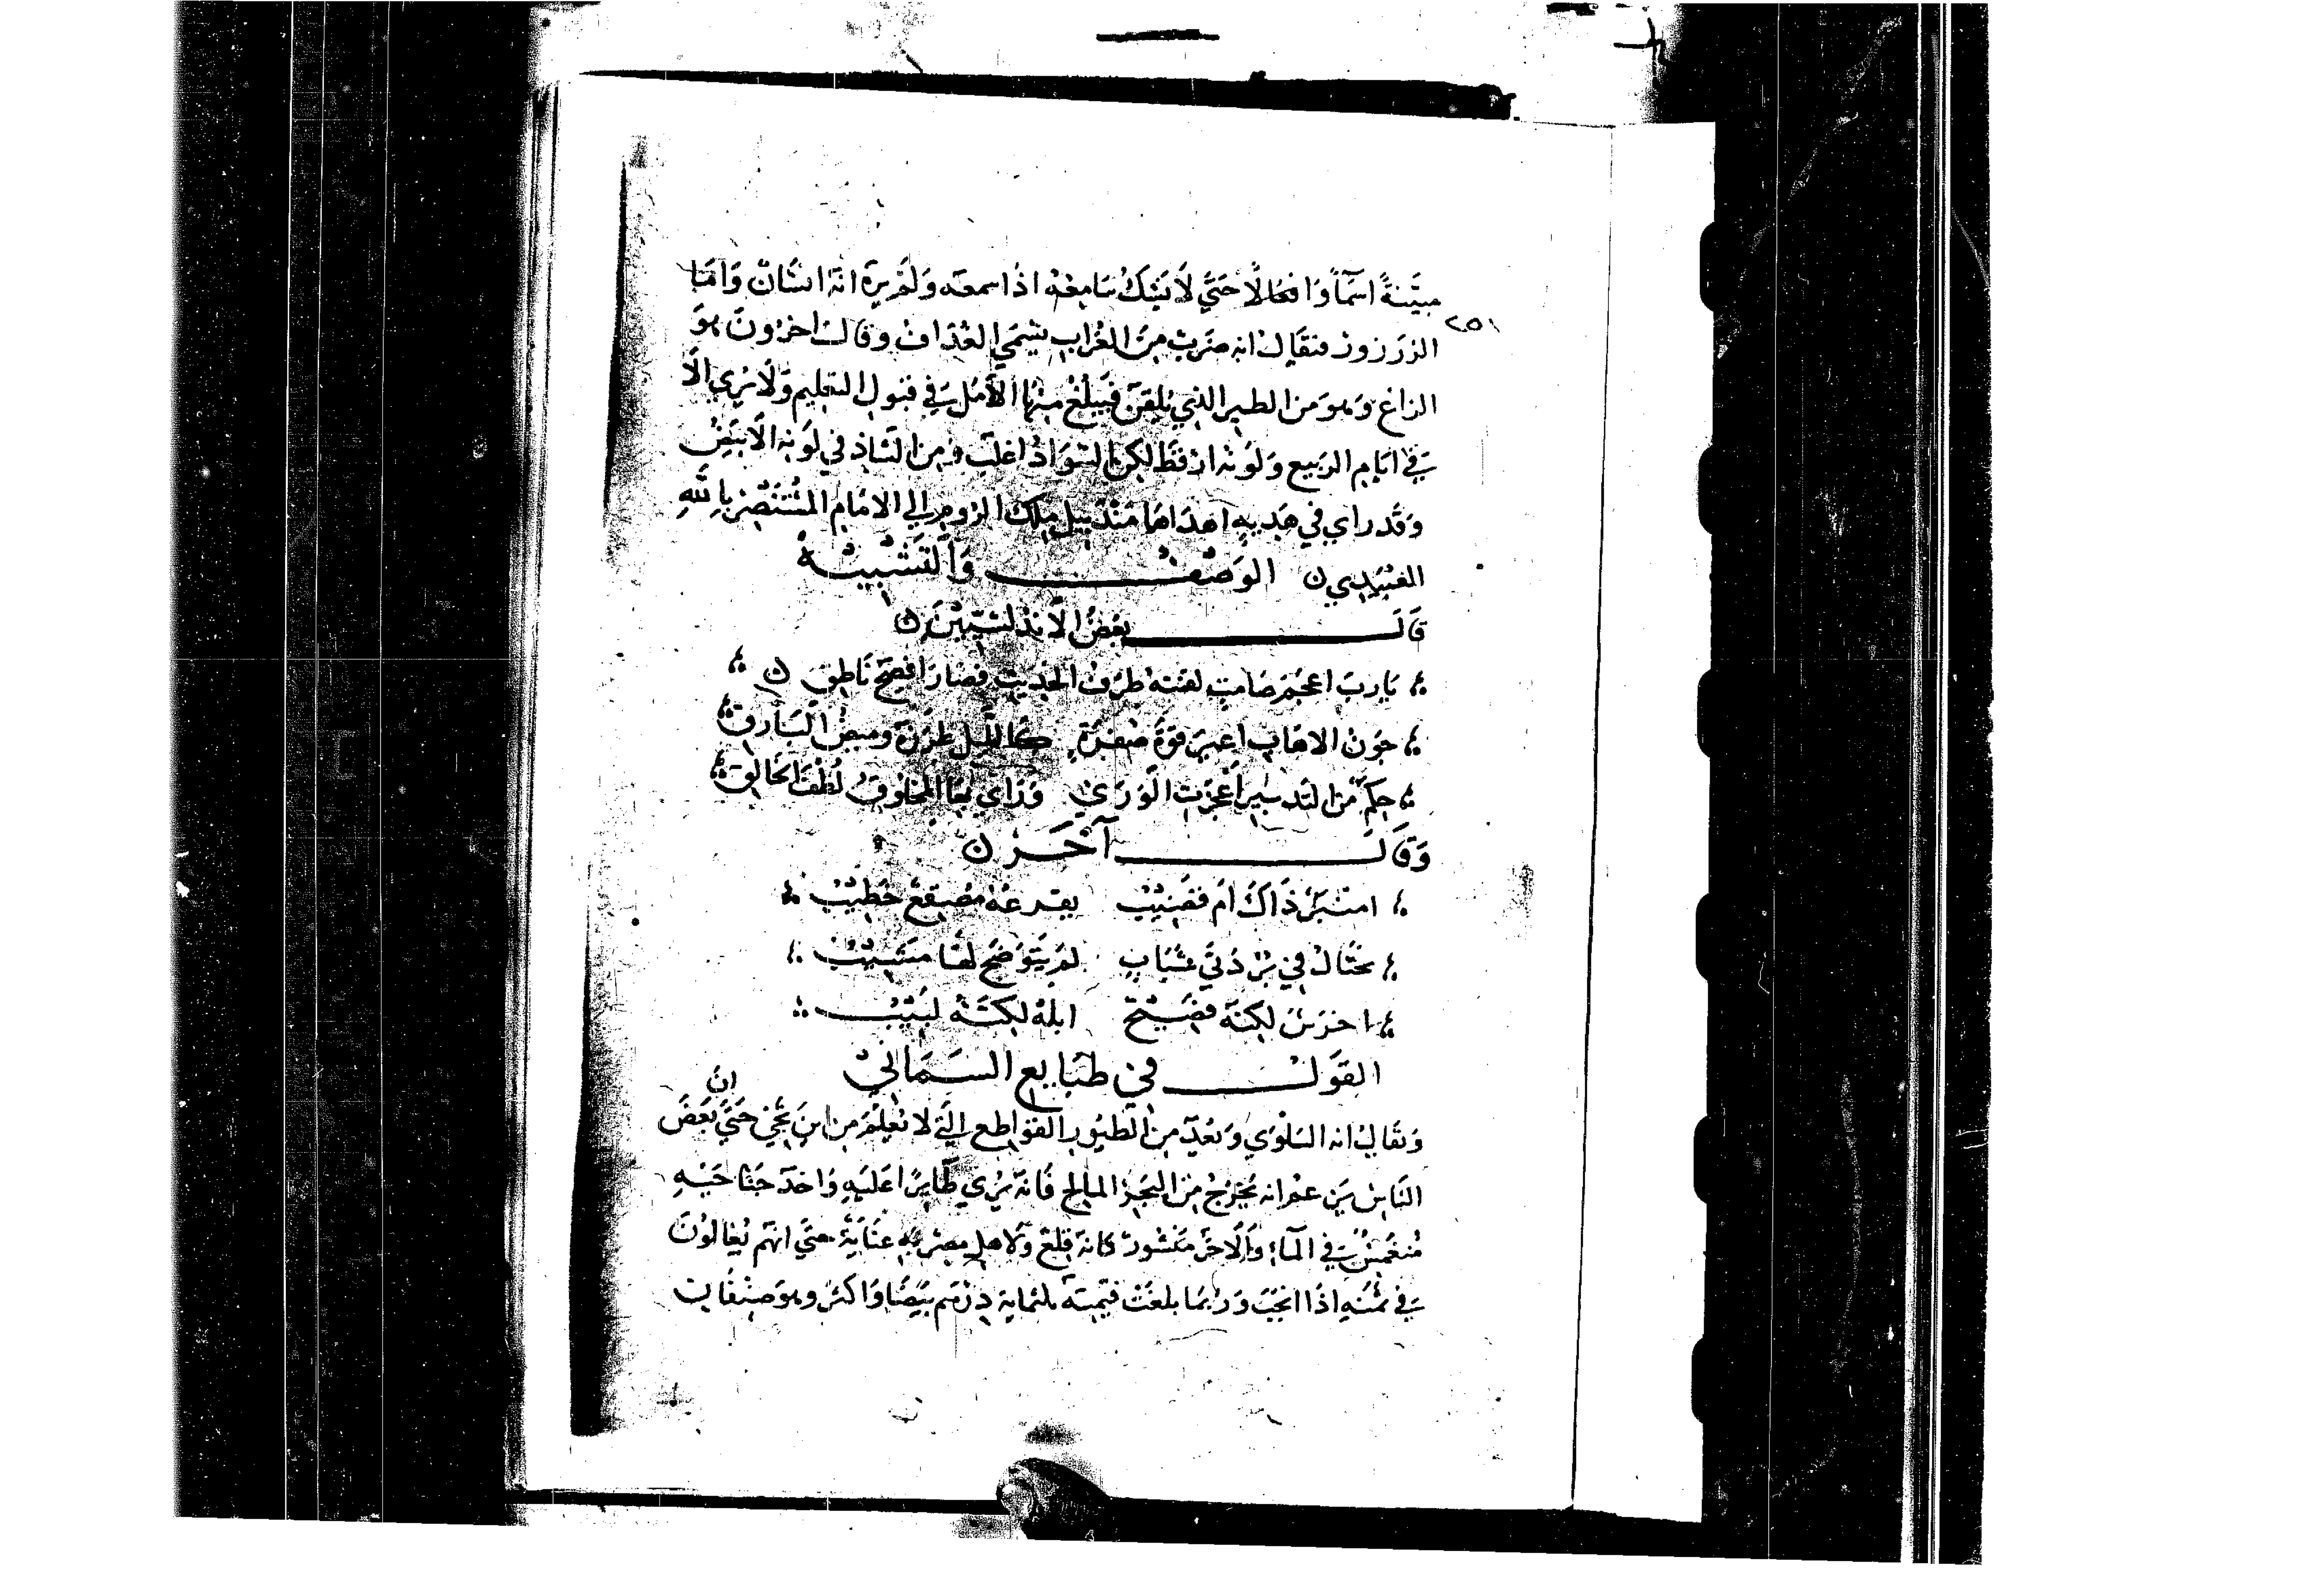 مبيّنةً اسمآً وَافعَالًا حَتَّي لَا يَشكّ سَامِعُهُ اذا سمعَه وَلَم يرَهَ انهَ انسَانٌ وَامَّا
٢٥١
الزرَزورُ فيقَال انه ضَربٌ مِنَ الغُراب يسَمّي الغُدَاف وقالَ اخرُونَ هوَ
الزاغ وَهوَ من الطير الذي يلقّن فَيَبلغ منهَا الأمَل في قبَول التعليم وَلَا يُرَي الَّا
في ايّام الربَيع وَلَونُه ارقَط لكن السّوَادُ اغلَب وَمن الشاذ في لَونه الَابيَضُ
وَقَد راي في هَديه اهدَاهَا ملك الرُوم الي الامَامِ المُستَنصِر بِاللهِ
العُبَيدِي ن الوَصْف وَالتَّشْبِيْهُ
قَالَ بعَضُ الَانْدلُسيِّيْنَ ن
يَا ربَّ اعجَم صَامِتٍ لقنتهُ طرَفُ الحَديثِ فصَارَ افصَحَ نَاطِقِ ن
جَون الاهَاب اعيرَ فوَهُ صُفرَةٍ كَاللّيل طرّزهَ وميضُ البَارقِ
حِكَم منَ التدبير اَعجَزتِ الوَرَي وَرَاي بهَا المخلوقُ لُطفَ الخَالِقِ
وَقَالَ آخَرُ ن
امنبَرٌ ذَاكَ اَم قضَيْبٌ يقرعُهُ مُصقعٌ خَطِيْبُ
يختَالُ في بُردَتَي شَبَابٍ لم يَتوَضّح لهَا مَشيْبُ
اخرَسُ لكنّهَ فصَيْحٌ ابلهُ لكنَّهُ لبيَبْ
القَولُ في طبَايع السمَاني
وَيقَال انه السّلوَي وَيعُدّ من الطيُور القوَاطع الّتي لا يُعلمُ مِن اينَ تجيُ حَتّيَ انَّ بعَضَ
النّاس يزعم انه يخرُجُ منَ البَحَر المالح فَانه يُرَي طَايرًا عَليَهِ وَاحَدَ جَنَاحَيْهِ
مُنغَمِسٌ في المآءِ وَالَاخَر مَنشورٌ كانه قلعٌ وَلَاهلِ مصرَ به عنَايَةٌ حَتّي انهم يُغَالوُنَ
في ثمنَهِ اذَا انجَبَ وَرُبمَا بلغَتْ قيَمتهُ ثلثمايةِ دِرهَم بيَضًا وَاكثر وهوَ صنْفَان